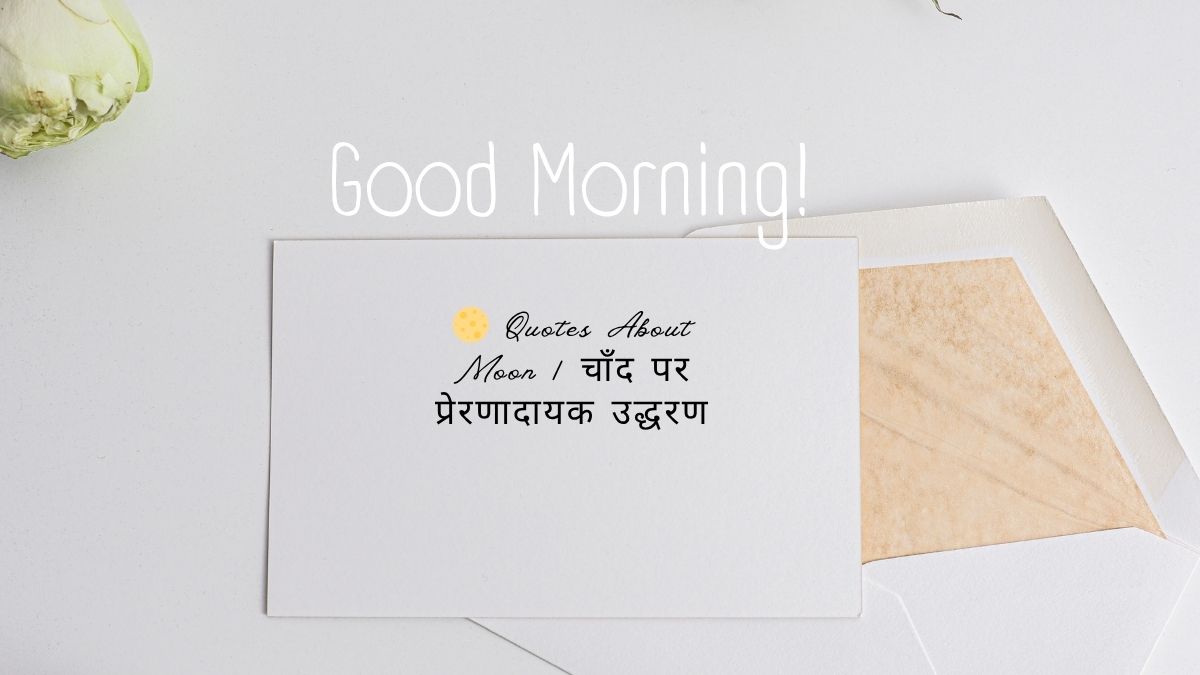 Good Morning!
🌕 Quotes About
Moon | चाँद पर
प्रेरणादायक उद्धरण